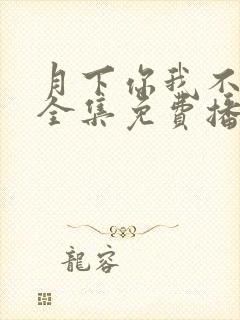 月下你我不
全集免費播
龍容